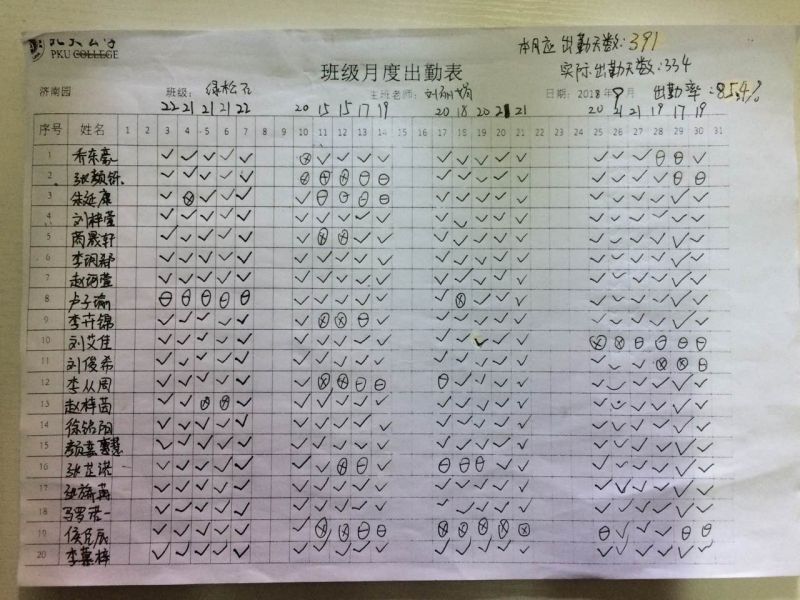 PKU COLLEGE
本月应出勤天数:391
实际出勤天数:334
班级月度出勤表
济南园 班级: 绿松石 主班老师: 日期: 2018年9月 出勤率:85.4%
22 21 21 21 22 20 15 15 17 19 20 18 20 21 21 20 21 21 18 17 19
序号 姓名 1 2 3 4 5 6 7 8 9 10 11 12 13 14 15 16 17 18 19 20 21 22 23 24 25 26 27 28 29 30 31
1 乔东豪
2 张颢钶
3 朱延康
4 刘梓莹
5 芮晟轩
6
7 赵珂萱
8 卢子瑜
9 李卉锦
10 刘艾佳
11 刘俊希
12 李从周
13 赵梓茵
14 徐铭阳
15
16 张芷诺
17 张旖苒
18 马罗诺一
19
20 李慕梓